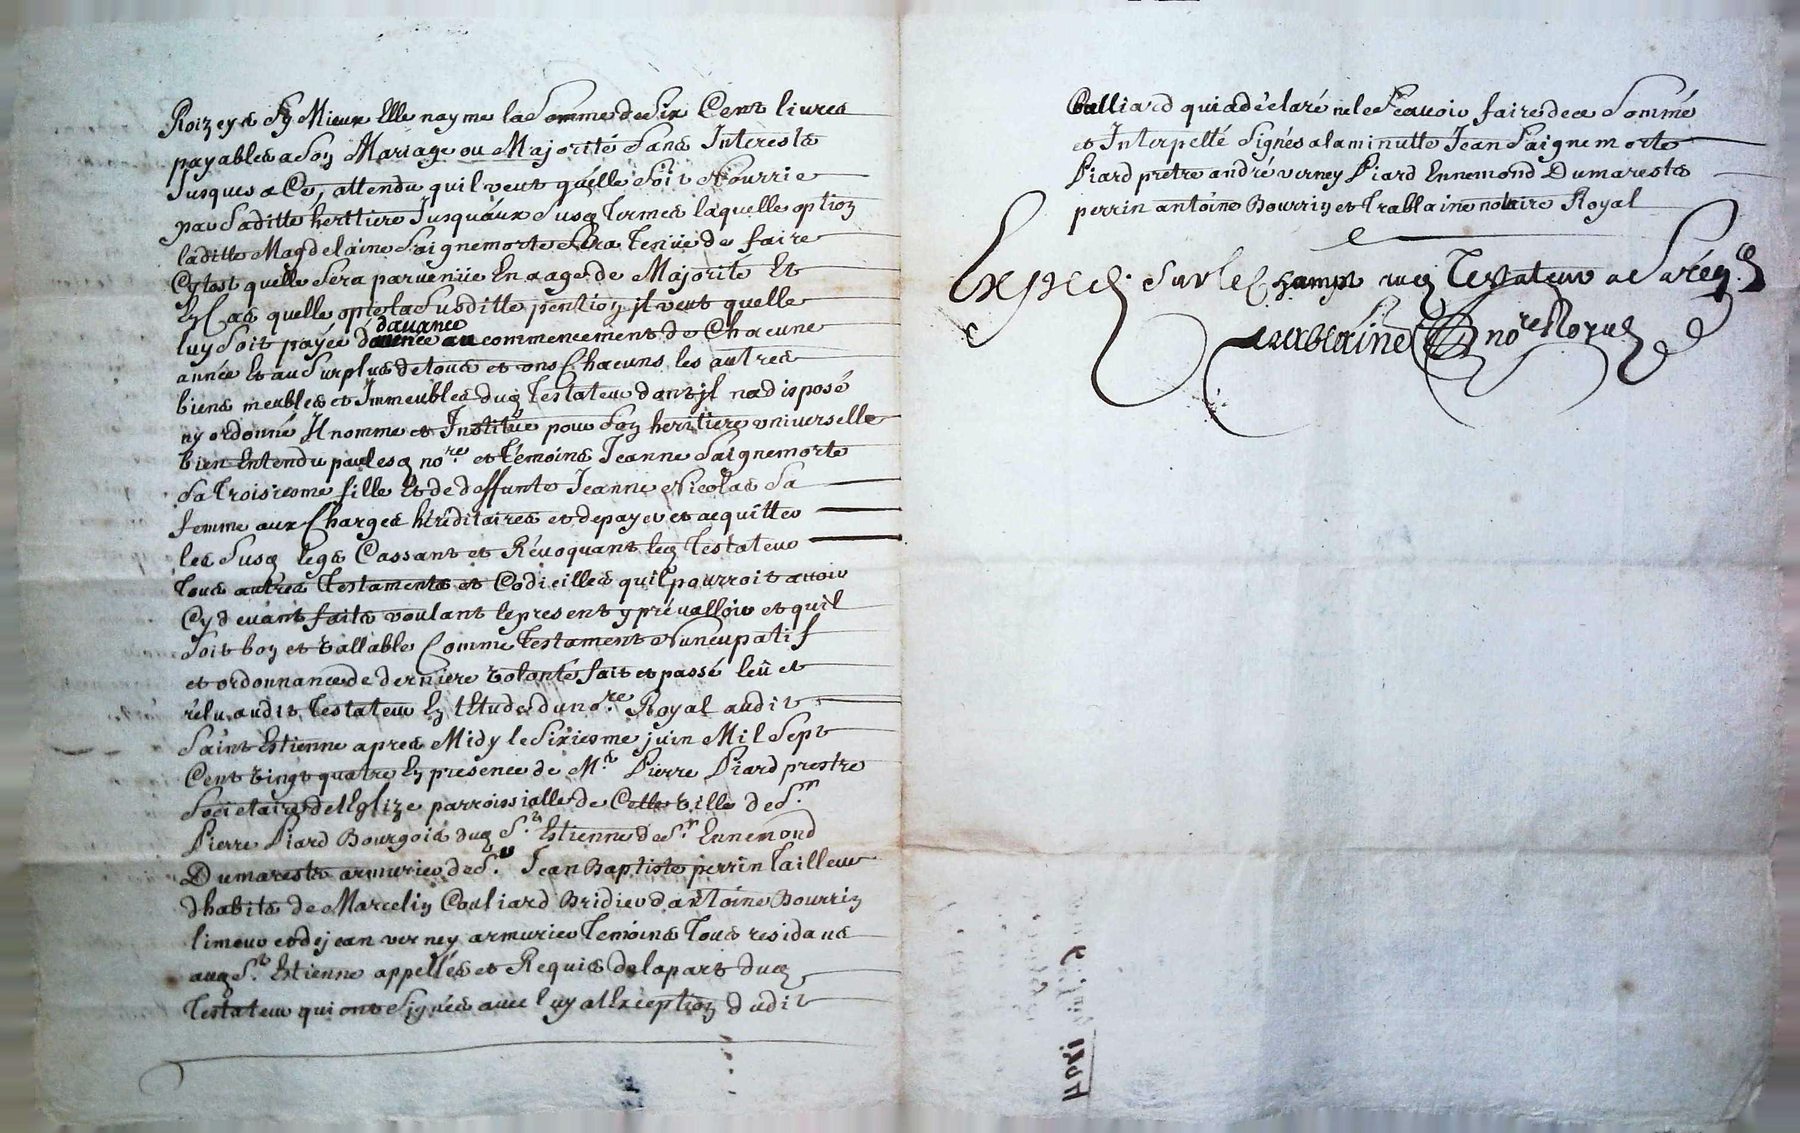 Roizey et Sy Mieux Elle nayme la Somme de Six Cent livres
payables a Soy Mariage ou Majorité Sans Interests
Jusques a Ce, attendu quil veut quélle Soit Nourrie
par Saditte herttiere Jusquáux Susd Termes laquelle optioy
laditte Magdelaine Saignemorte Sera Tenüe de faire
Cytost quelle Séra parvenüe En aage de Majorité Et
Ey Cas quelle opte la Susditte pentioy jl veut quelle
davance
luy Soit payéé au commencement de Chacune
année Et au Surplus de tous et uns Chacuns les autres
biens meubles et Jmmeubles dud Testateur dont jl na disposé
ny ordonné Jl nomme et Institüe pour Soy heritiere universelle
bien Entendu par lesd no.re et témoins Jeanne Saignemorte
Sa Troisiesme fille Et de deffunte Jeanne Nicolas Sa
femme aux Charges héréditaires et de payer et acquitter
les Susd legs Cassant et Révoquant led Testateur
Tous autres Testaments et Codicilles quil pourroit avoir
Cy devant faits voulant le present y prévalloir et quil
Soit boy et vallable Comme Testament Nuncupatif
et ordonnance de derniere volonté fait et passé leû et
rélu audit Testateur Ey l Etude du no.re Royal audit
Saint Estienne apres Midy le Sixiesme juin Mil Sept
Cent vingt quatre Ey presence de M.e Pierre Piard prestre
Societaire de l Eglize parroissialle de Cette ville de S.r
Pierre Piard Bourgois dud S.t Estienne de S.r Ennemond
Dumareste armurier de S.r Jean Baptiste perrin Tailleur
dhabits de Marceliy Couliard Bridier dantoine Bourriy
limeur et de jean verney armurier Temoins Tous residans
aud S.t Estienne appellés et Requis de la part dud
Testateur qui ont Signés avec luy a lExceptioy dudit
Coulliard qui a déclaré ne le Scavoir faire de ce Sommé
et Interpellé Signés a la minutte Jean Saignemorte
Piard pretre andré verney Piard Ennemond Dumareste
perrin antoine Bourriy et Trablaine notaire Royal
Exped. Sur le Champt aud Testateur a Sa réq.on
Trablaine no.re Royal